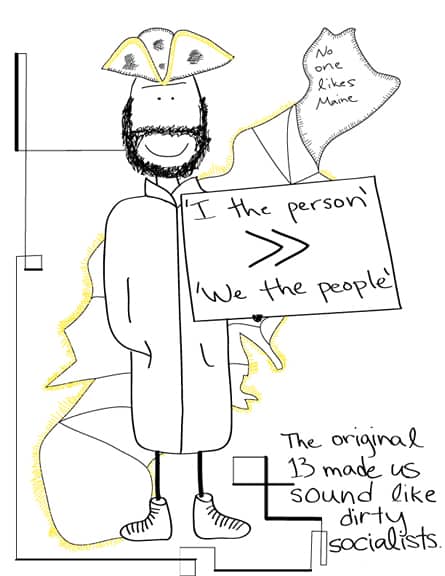 No
one
likes
Maine
'I the person'
>>
'We the people'
The original
13 made us
sound like
dirty
socialists.